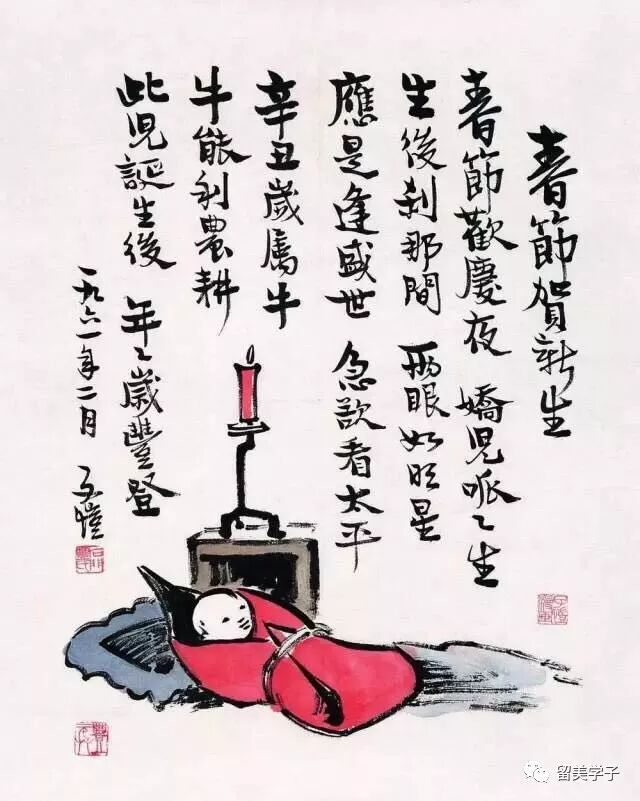 春節賀新生
春節歡慶夜 嬌兒呱々生
生後刹那間 兩眼如明星
應是逢盛世 急欲看太平
辛丑歲屬牛
牛能利農耕
此兒誕生後 年々歲豐登
一九六一年二月 子愷
留美学子